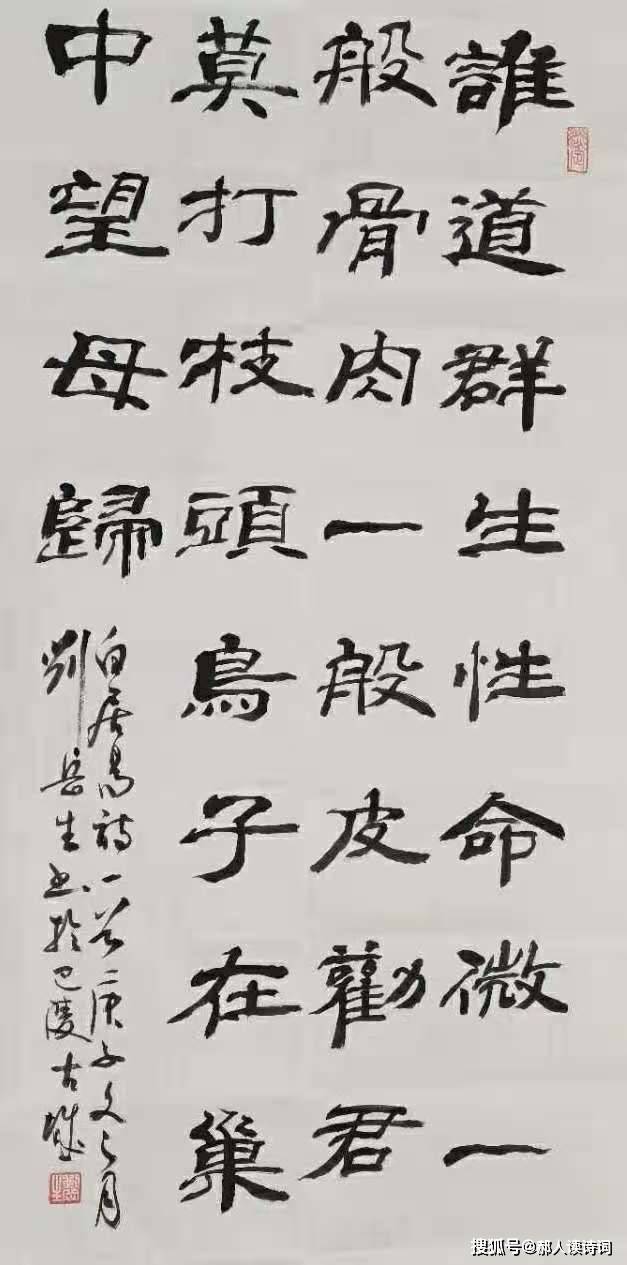 誰道群生性命微一
般骨肉一般皮勸君
莫打枝頭鳥子在巢
中望母歸
白居易詩一首庚子文之月
劉岳生书於巴陵古城
搜狐号@郝人读诗词